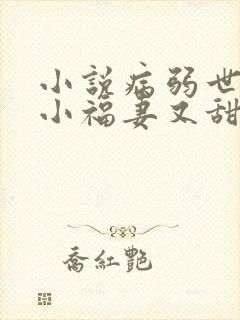 小說病弱世
小福妻又甜
喬紅艷